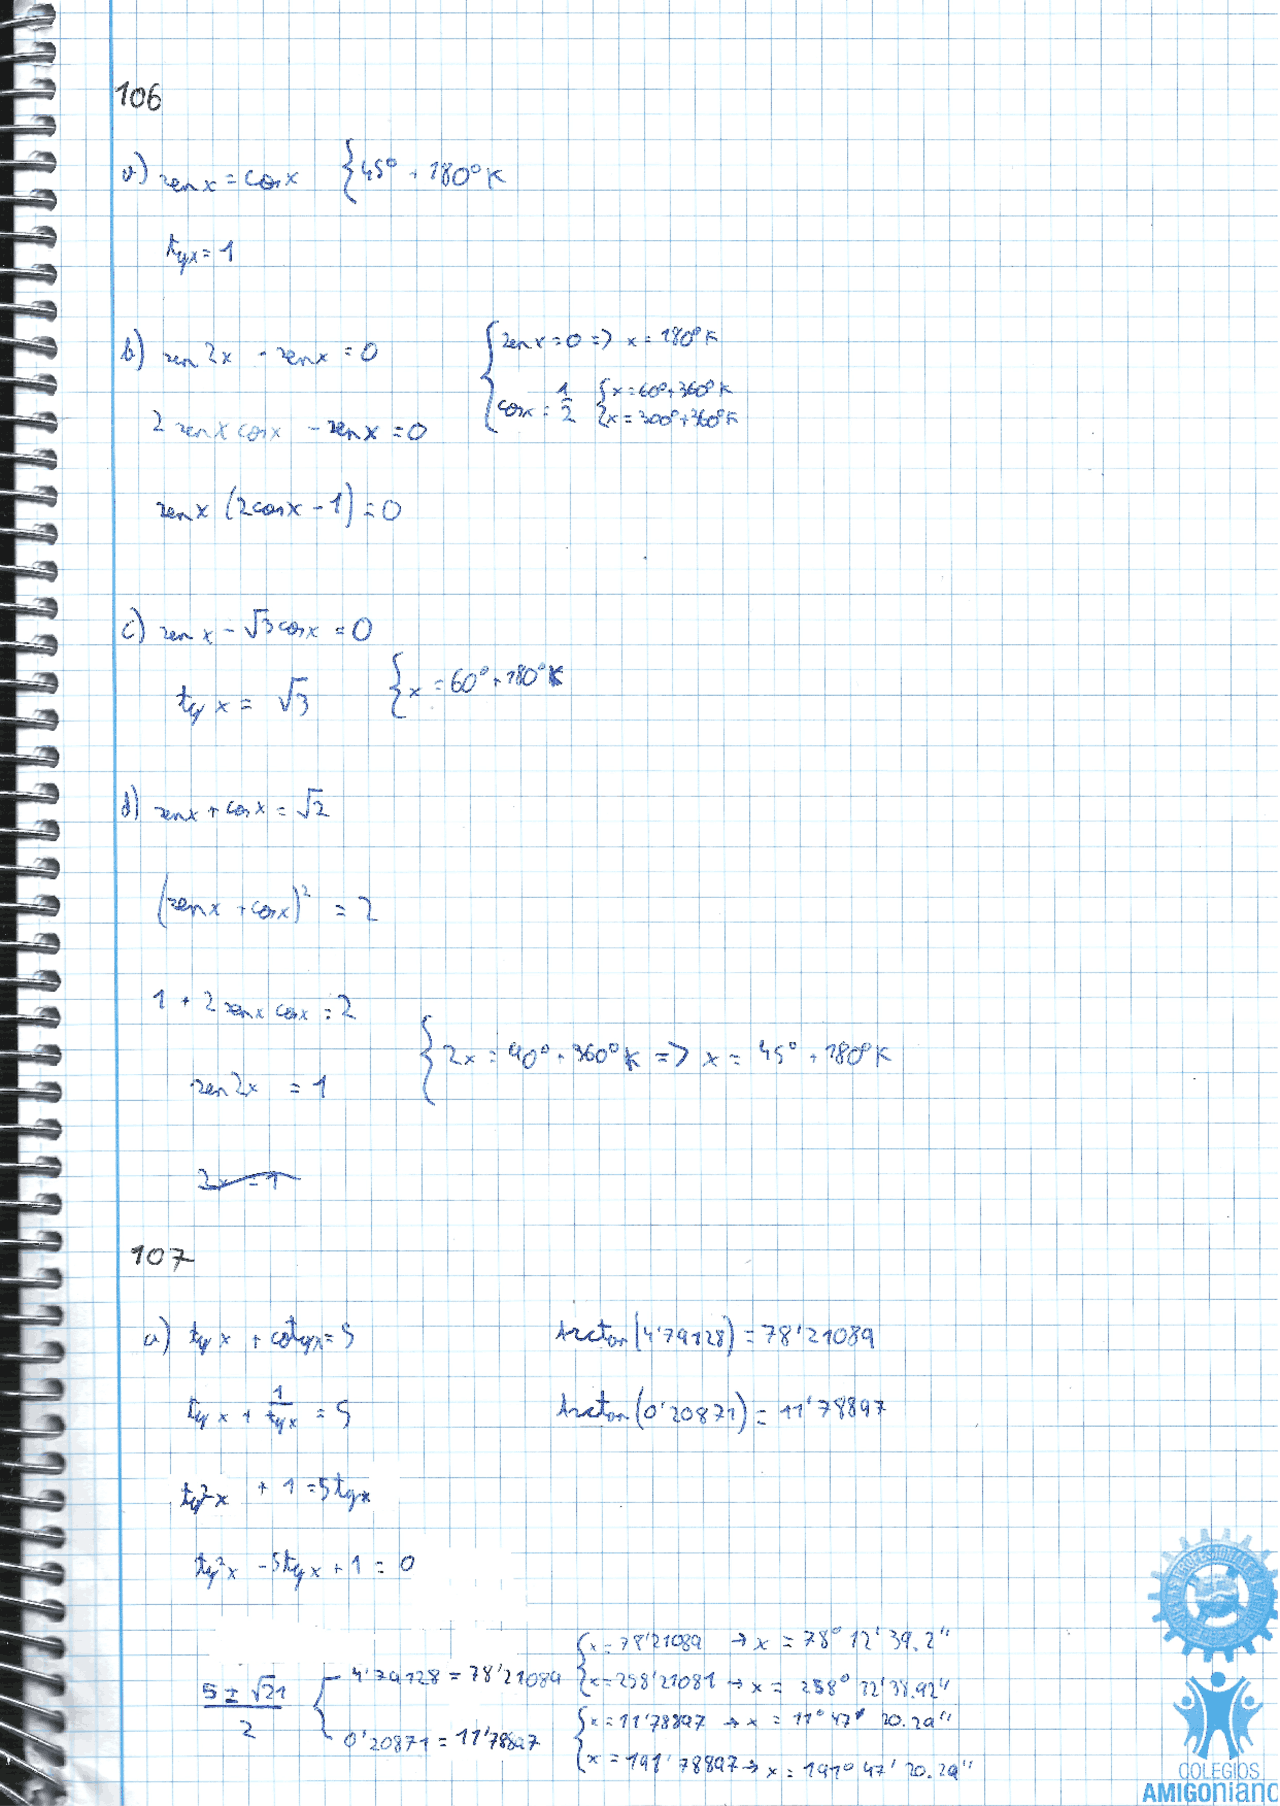 106
a) sen x = cos x { 45° + 180° K
tg x = 1
b) sen 2x - sen x = 0 { sen x = 0 => x = 180° K
cos x = 1/2 { x = 60° + 360° K
x = 300° + 360° K
2 sen x cos x - sen x = 0
sen x (2 cos x - 1) = 0
c) sen x - √3 cos x = 0
tg x = √3 { x = 60° + 180° K
d) sen x + cos x = √2
(sen x + cos x)² = 2
1 + 2 sen x cos x = 2
sen 2x = 1 { 2x = 90° + 360° K => x = 45° + 180° K
2x = 1
107
a) tg x + cotg x = 5 Arctan (4'79128) = 78'21089
tg x + 1/tg x = 5 Arctan (0'20871) = 11'78897
tg² x + 1 = 5 tg x
tg² x - 5 tg x + 1 = 0
5 ± √21 / 2 { 4'79128 = 78'21089 { x = 78'21089 → x = 78° 12' 39.2''
x = 258'21081 → x = 258° 12' 38.92''
0'20871 = 11'78897 { x = 11'78897 → x = 11° 47' 20.29''
x = 191'78897 → x = 191° 47' 20.29''
COLEGIOS
AMIGONIANO